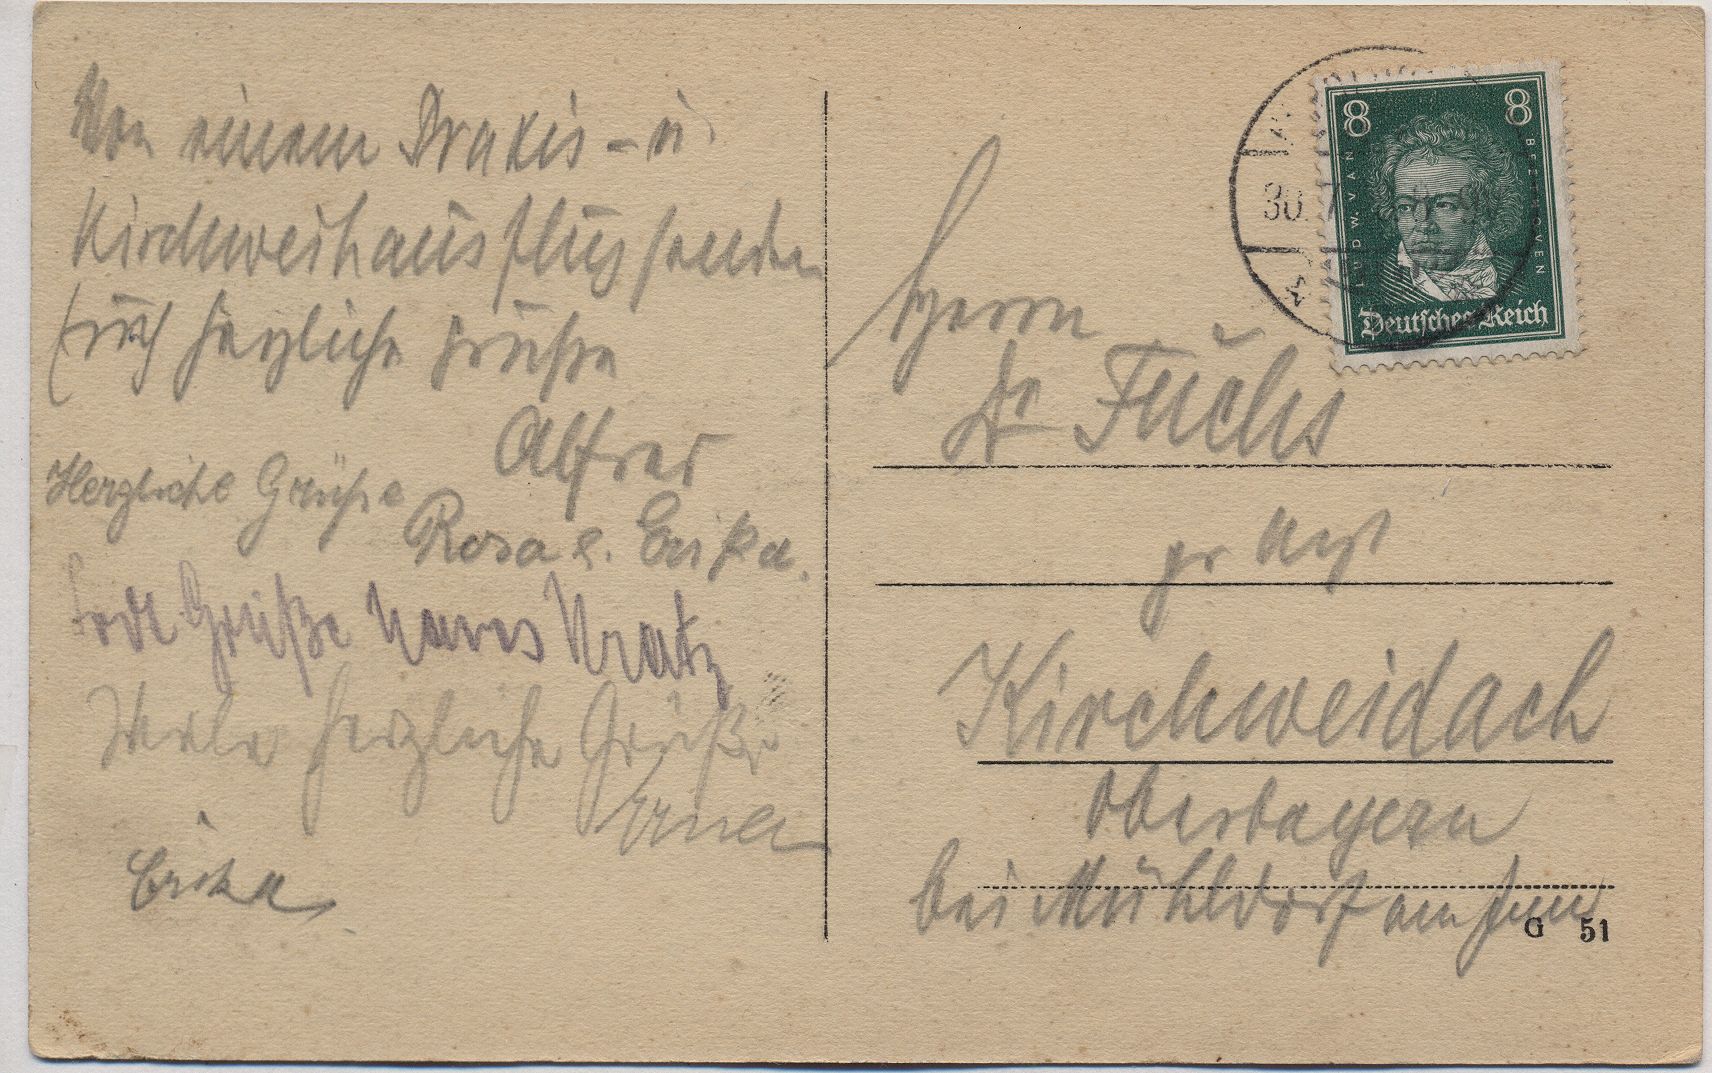 Von einem Praxis- u.
Kirchweihausflug senden
Euch herzliche Grüße
Alfred
Herzliche Grüße
Rosa u. Erika.
Grüße Kratz
Viele herzliche Grüße
Erna
Erika
Herrn
Dr Fuchs
pr Arzt
Kirchweidach
Oberbayern
bei Mühldorf am Inn
8 8
LUDW. VAN BEETHOVEN
Deutsches Reich
30.
G 51